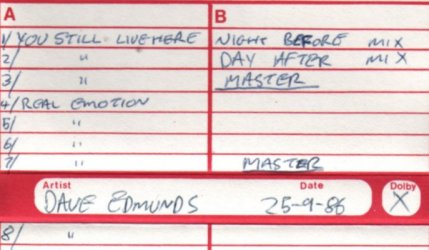 A B
1/ YOU STILL LIVE HERE NIGHT BEFORE MIX
2/ " DAY AFTER MIX
3/ " MASTER
4/ REAL EMOTION
5/ "
6/ "
7/ " MASTER
Artist Date Dolby
DAVE EDMUNDS 25-9-86 X
8/ "